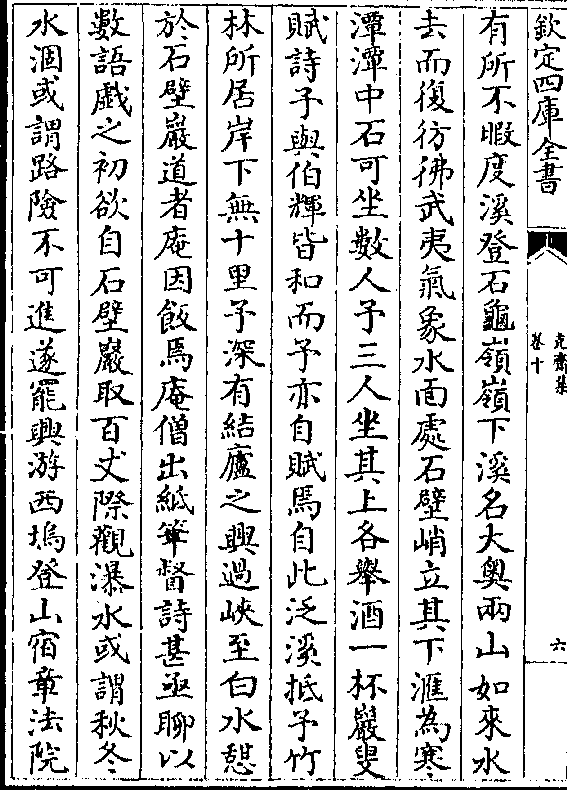 欽定四庫全書
克齋集
卷十
六
有所不暇度溪登石龜嶺嶺下溪名大奥兩山如來水
去而復彷彿武夷氣象水面處石壁峭立其下滙為寒
潭潭中石可坐數人予三人坐其上各舉酒一杯巖叟
賦詩予與伯輝皆和而予亦自賦焉自此泛溪抵予竹
林所居岸下無十里予深有結廬之興過峽至白水憇
於石壁巖道者庵因飯焉庵僧出紙筆督詩甚亟聊以
數語戱之初欲自石壁巖取百丈際觀瀑水或謂秋冬
水涸或謂路險不可進遂罷興游西塢登山宿章法院